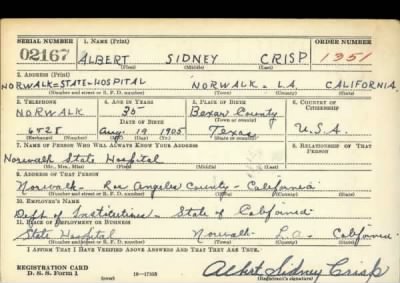 SERIAL NUMBER 1. NAME (Print) ORDER NUMBER
02167 ALBERT SIDNEY CRISP 1351
(First) (Middle) (Last)
2. ADDRESS (Print)
NORWALK-STATE-HOSPITAL NORWALK - L.A. CALIFORNIA
(Number and street or R. F. D. number) (Town) (County) (State)
3. TELEPHONE 4. AGE IN YEARS 5. PLACE OF BIRTH 6. COUNTRY OF CITIZENSHIP
NORWALK 35 Bexar County
DATE OF BIRTH
6528 Aug. 19 1905 Texas U.S.A.
(Exchange) (Number) (Mo.) (Day) (Yr.) (State or country)
7. NAME OF PERSON WHO WILL ALWAYS KNOW YOUR ADDRESS 8. RELATIONSHIP OF THAT PERSON
Norwalk State Hospital
(Mr., Mrs., Miss) (First) (Middle) (Last)
9. ADDRESS OF THAT PERSON
Norwalk - Los Angeles County - California
(Number and street or R. F. D. number) (Town) (County) (State)
10. EMPLOYER'S NAME
Dept. of Institutions - State of California
11. PLACE OF EMPLOYMENT OR BUSINESS
State Hospital Norwalk - L.A. - California
(Number and street or R. F. D. number) (Town) (County) (State)
I AFFIRM THAT I HAVE VERIFIED ABOVE ANSWERS AND THAT THEY ARE TRUE.
REGISTRATION CARD
D. S. S. Form 1 (over) 16-17105 Albert Sidney Crisp
(Registrant's signature)